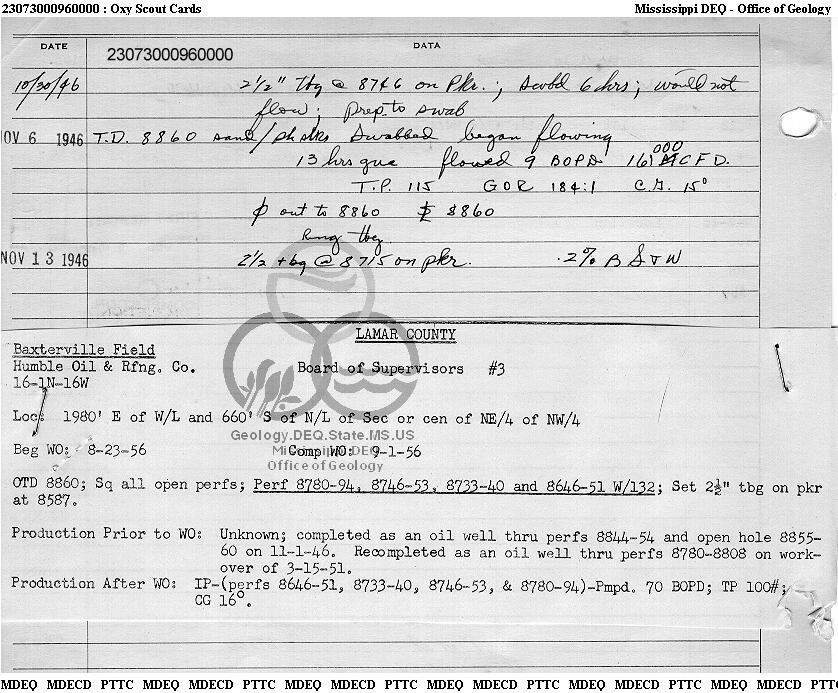 23073000960000 : Oxy Scout Cards Mississippi DEQ - Office of Geology
DATE 23073000960000 DATA
10/30/46 2½" tbg @ 8746 on Pkr.; swbd 6 hrs; would not
flow; prep to swab
NOV 6 1946 T.D. 8860 sand/ph stks Swabbed began flowing
13 hrs gue flowed 9 BOPD 161 000 CFD.
T.P. 115 GOR 184:1 C.G. 15°
out to 8860 8860
Rng tbg.
NOV 13 1946 2½ tbg @ 8715 on pkr. .2% B S & W
LAMAR COUNTY
Baxterville Field
Humble Oil & Rfng. Co. Board of Supervisors #3
16-1N-16W
Loc: 1980' E of W/L and 660' S of N/L of Sec or cen of NE/4 of NW/4
Geology.DEQ.State.MS.US
Beg WO: 8-23-56 Comp WO: 9-1-56
Mississippi DEQ
Office of Geology
OTD 8860; Sq all open perfs; Perf 8780-94, 8746-53, 8733-40 and 8646-51 W/132; Set 2½" tbg on pkr
at 8587.
Production Prior to WO: Unknown; completed as an oil well thru perfs 8844-54 and open hole 8855-
60 on 11-1-46. Recompleted as an oil well thru perfs 8780-8808 on work-
over of 3-15-51.
Production After WO: IP-(perfs 8646-51, 8733-40, 8746-53, & 8780-94)-Pmpd. 70 BOPD; TP 100#;
CG 16°.
MDEQ MDECD PTTC MDEQ MDECD PTTC MDEQ MDECD PTTC MDEQ MDECD PTTC MDEQ MDECD PTTC MDEQ MDECD PTT